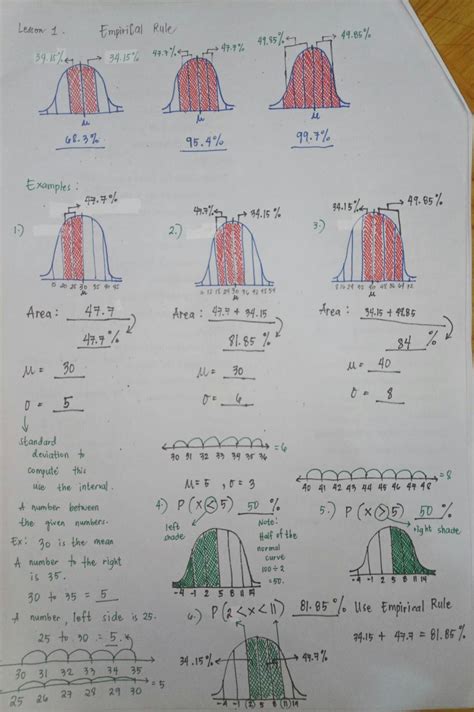 Lesson 1. Empirical Rule
34.15% 34.15% 47.7% 47.7% 49.85% 49.85%
μ μ μ
68.3% 95.4% 99.7%
Examples:
47.7% 47.7% 34.15% 34.15% 49.85%
1.) 2.) 3.)
15 20 25 30 35 40 45
μ μ μ
Area: 47.7 Area: 47.7 + 34.15 Area: 34.15 + 49.85
47.7% 81.85% 84%
μ = 30 μ = 30 μ = 40
σ = 5 σ = 6 σ = 8
standard
deviation to
compute this
use the interval.
A number between
the given numbers.
Ex: 30 is the mean
A number to the right
is 35.
30 to 35 = 5
A number, left side is 25.
25 to 30 = 5.
30 31 32 33 34 35
25 26 27 28 29 30 = 5
30 31 32 33 34 35 36 = 6
40 41 42 43 44 45 46 47 48 = 8
μ = 5, σ = 3
4.) P(x < 5) 50%
left
shade
Note:
Half of the
normal
curve
100 ÷ 2
= 50.
-4 -1 2 5 8 11 14
5.) P(x > 5) 50%
right shade
-4 -1 2 5 8 11 14
6.) P(2 < x < 11) 81.85% Use Empirical Rule
34.15 + 47.7 = 81.85%
34.15% 47.7%
-4 -1 (2) 5 8 (11) 14